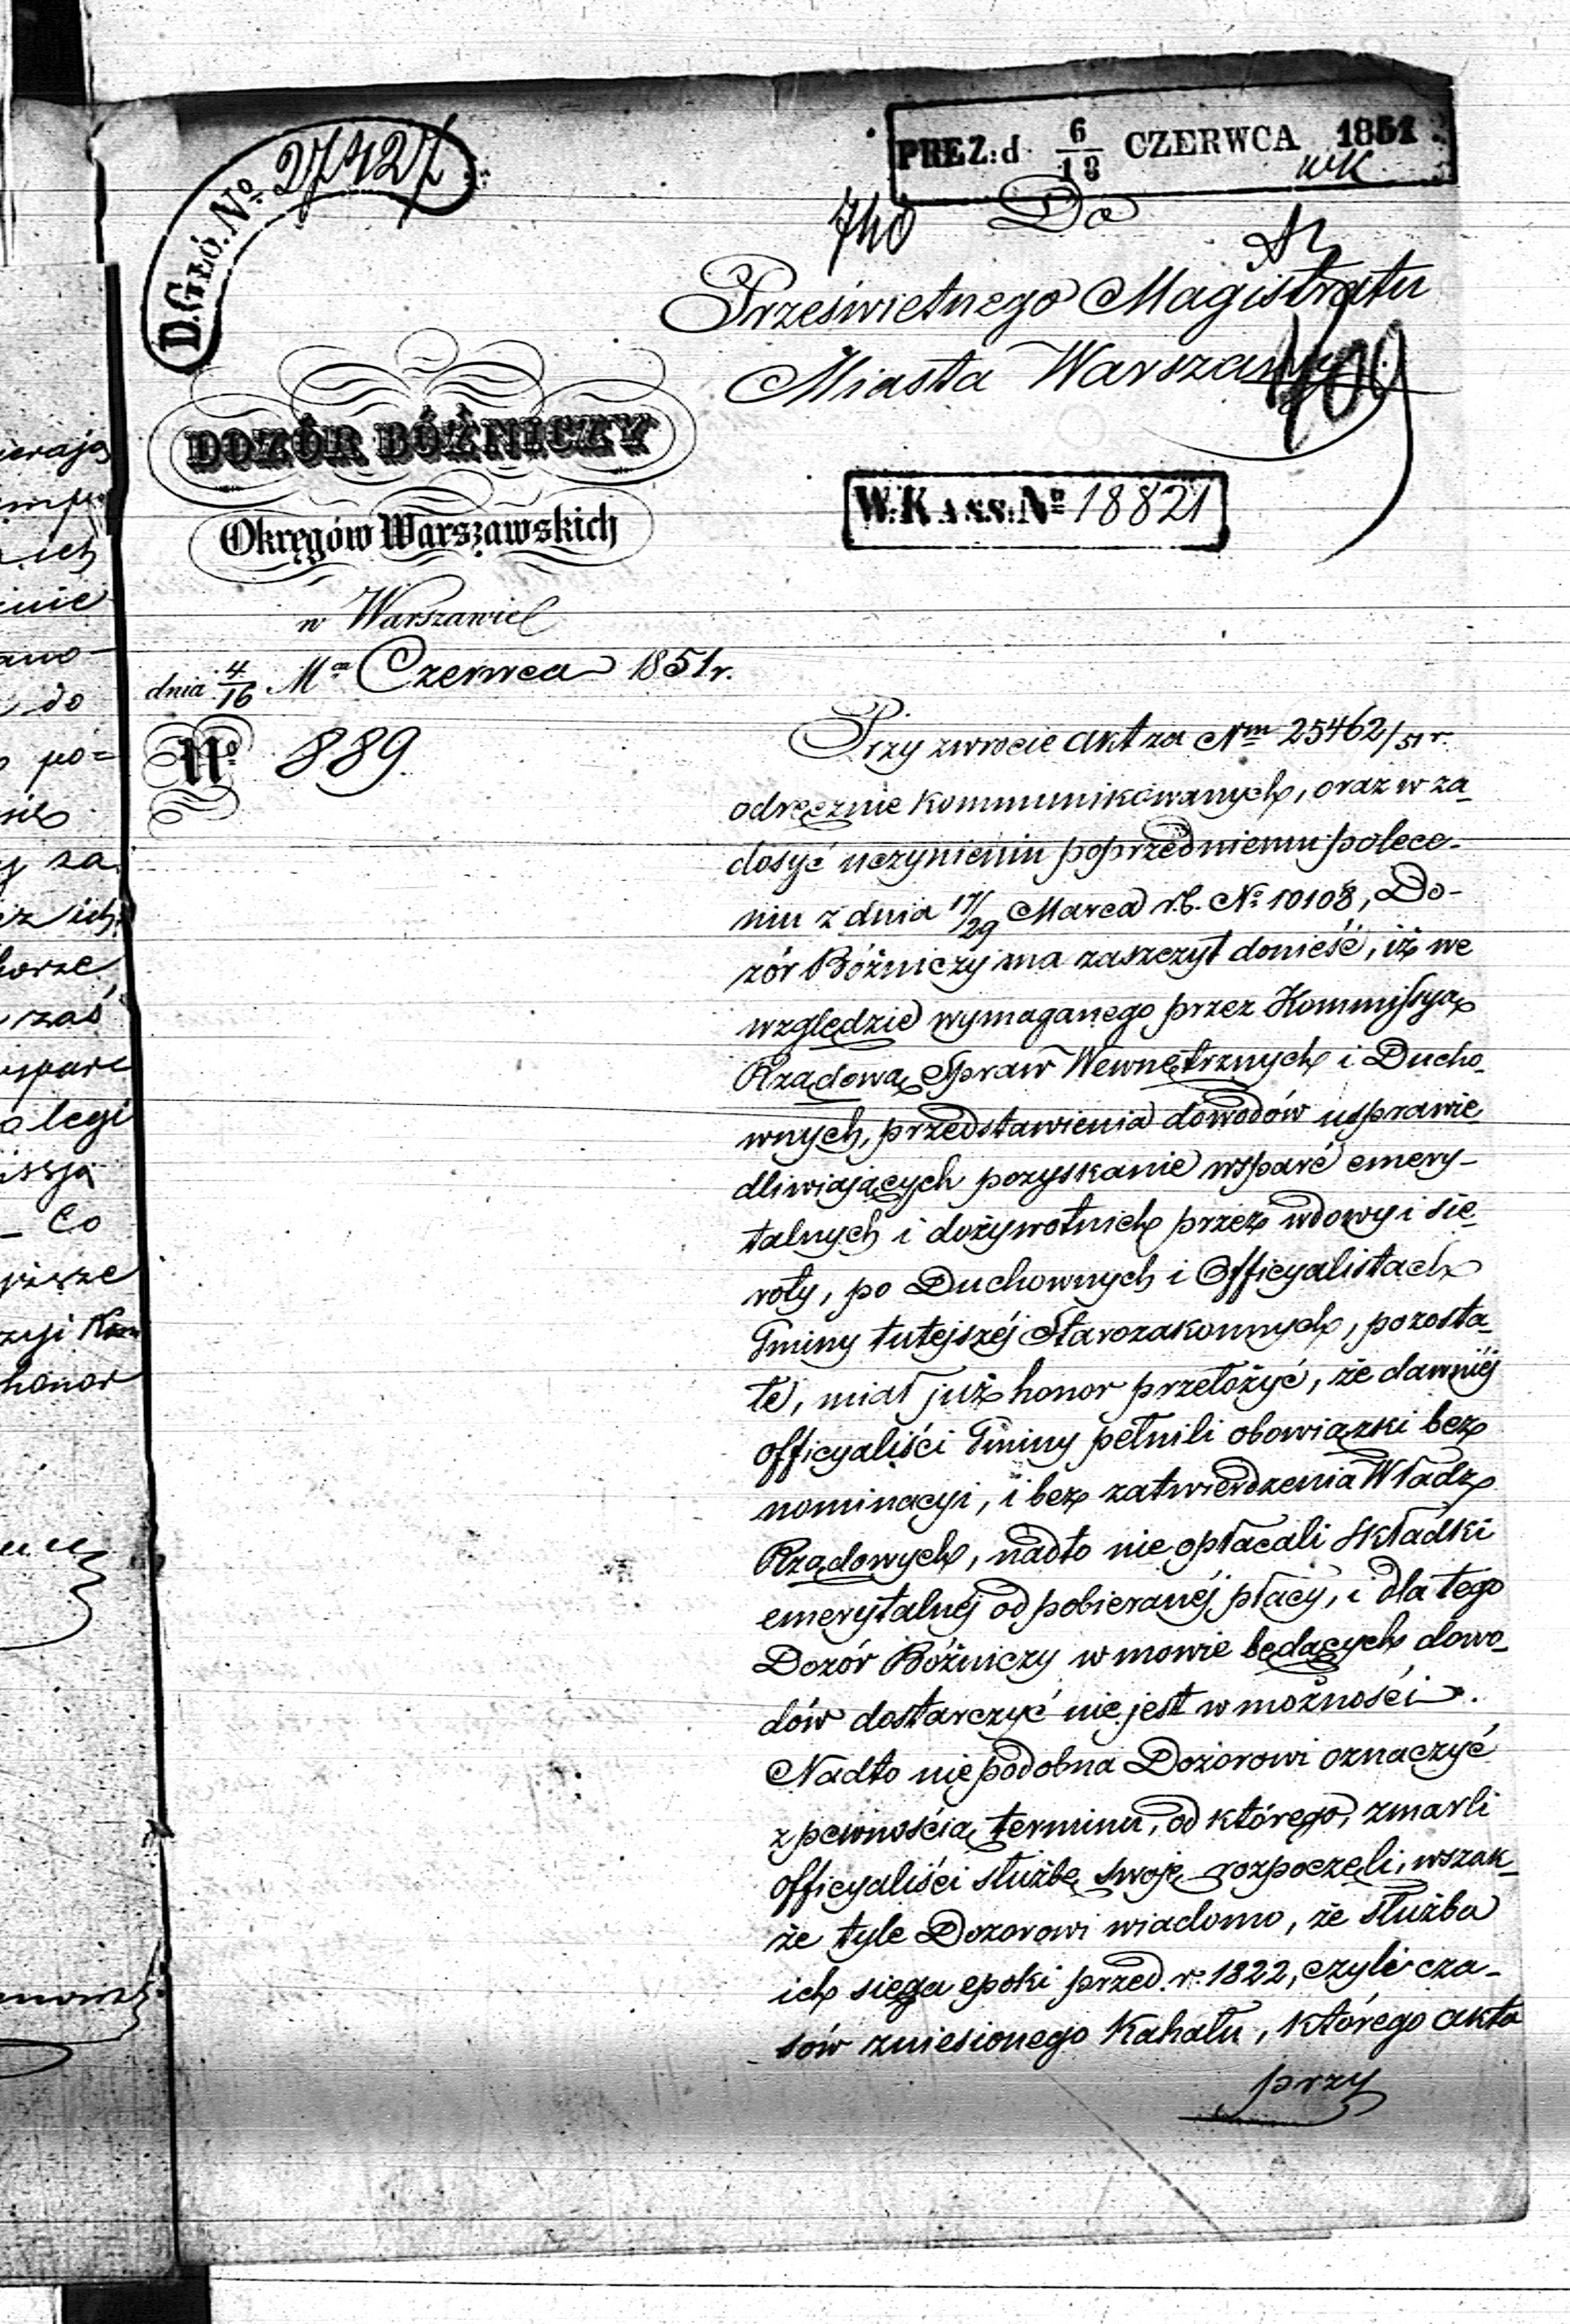 D. Głó. No. 27427
PREZ: d. 6/18 CZERWCA 1851
wK
740 Do
Prześwietnego Magistratu
Miasta Warszawy
DOZÓR BÓŻNICZY
Okręgów Warszawskich
W. KASS: No 18821
w Warszawie
dnia 4/16 Mca Czerwca 1851 r.
No. 889.
Przy zwrocie akt za Nm 25462/51 r.
odręcznie kommunikowanych, oraz w za-
dosyć uczynieniu poprzedniemu polece-
niu z dnia 17/29 Marca r.b. No 10108, Do-
zór Bóżniczy ma zaszczyt donieść, iż we
względzie wymaganego przez Kommissyą
Rządową Spraw Wewnętrznych i Ducho-
wnych, przedstawienia dowodów usprawie-
dliwiających pozyskanie wsparć emery-
talnych i dożywotnich przez wdowy i sie-
roty, po Duchownych i Officyalistach
Gminy tutejszéj Starozakonnych, pozosta-
łe, miał już honor przełożyć, że dawniéj
officyaliści Gminy pełnili obowiązki bez
nominacyi, i bez zatwierdzenia Władz
Rządowych, nadto nie opłacali składki
emerytalnéj od pobieranéj płacy, i dla tego
Dozór Bóżniczy w mowie będących dowo-
dów dostarczyć nie jest w możności.
Nadto nie podobna Dozorowi oznaczyć
z pewnością terminu, od którego, zmarli
officyaliści służbę swoję rozpoczęli, wszak-
że tyle Dozorowi wiadomo, że służba
ich sięga epoki przed r. 1822, czyli cza-
sów zniesionego Kahału, którego akta
przy
ich
do
zaś
legi
Co
honor